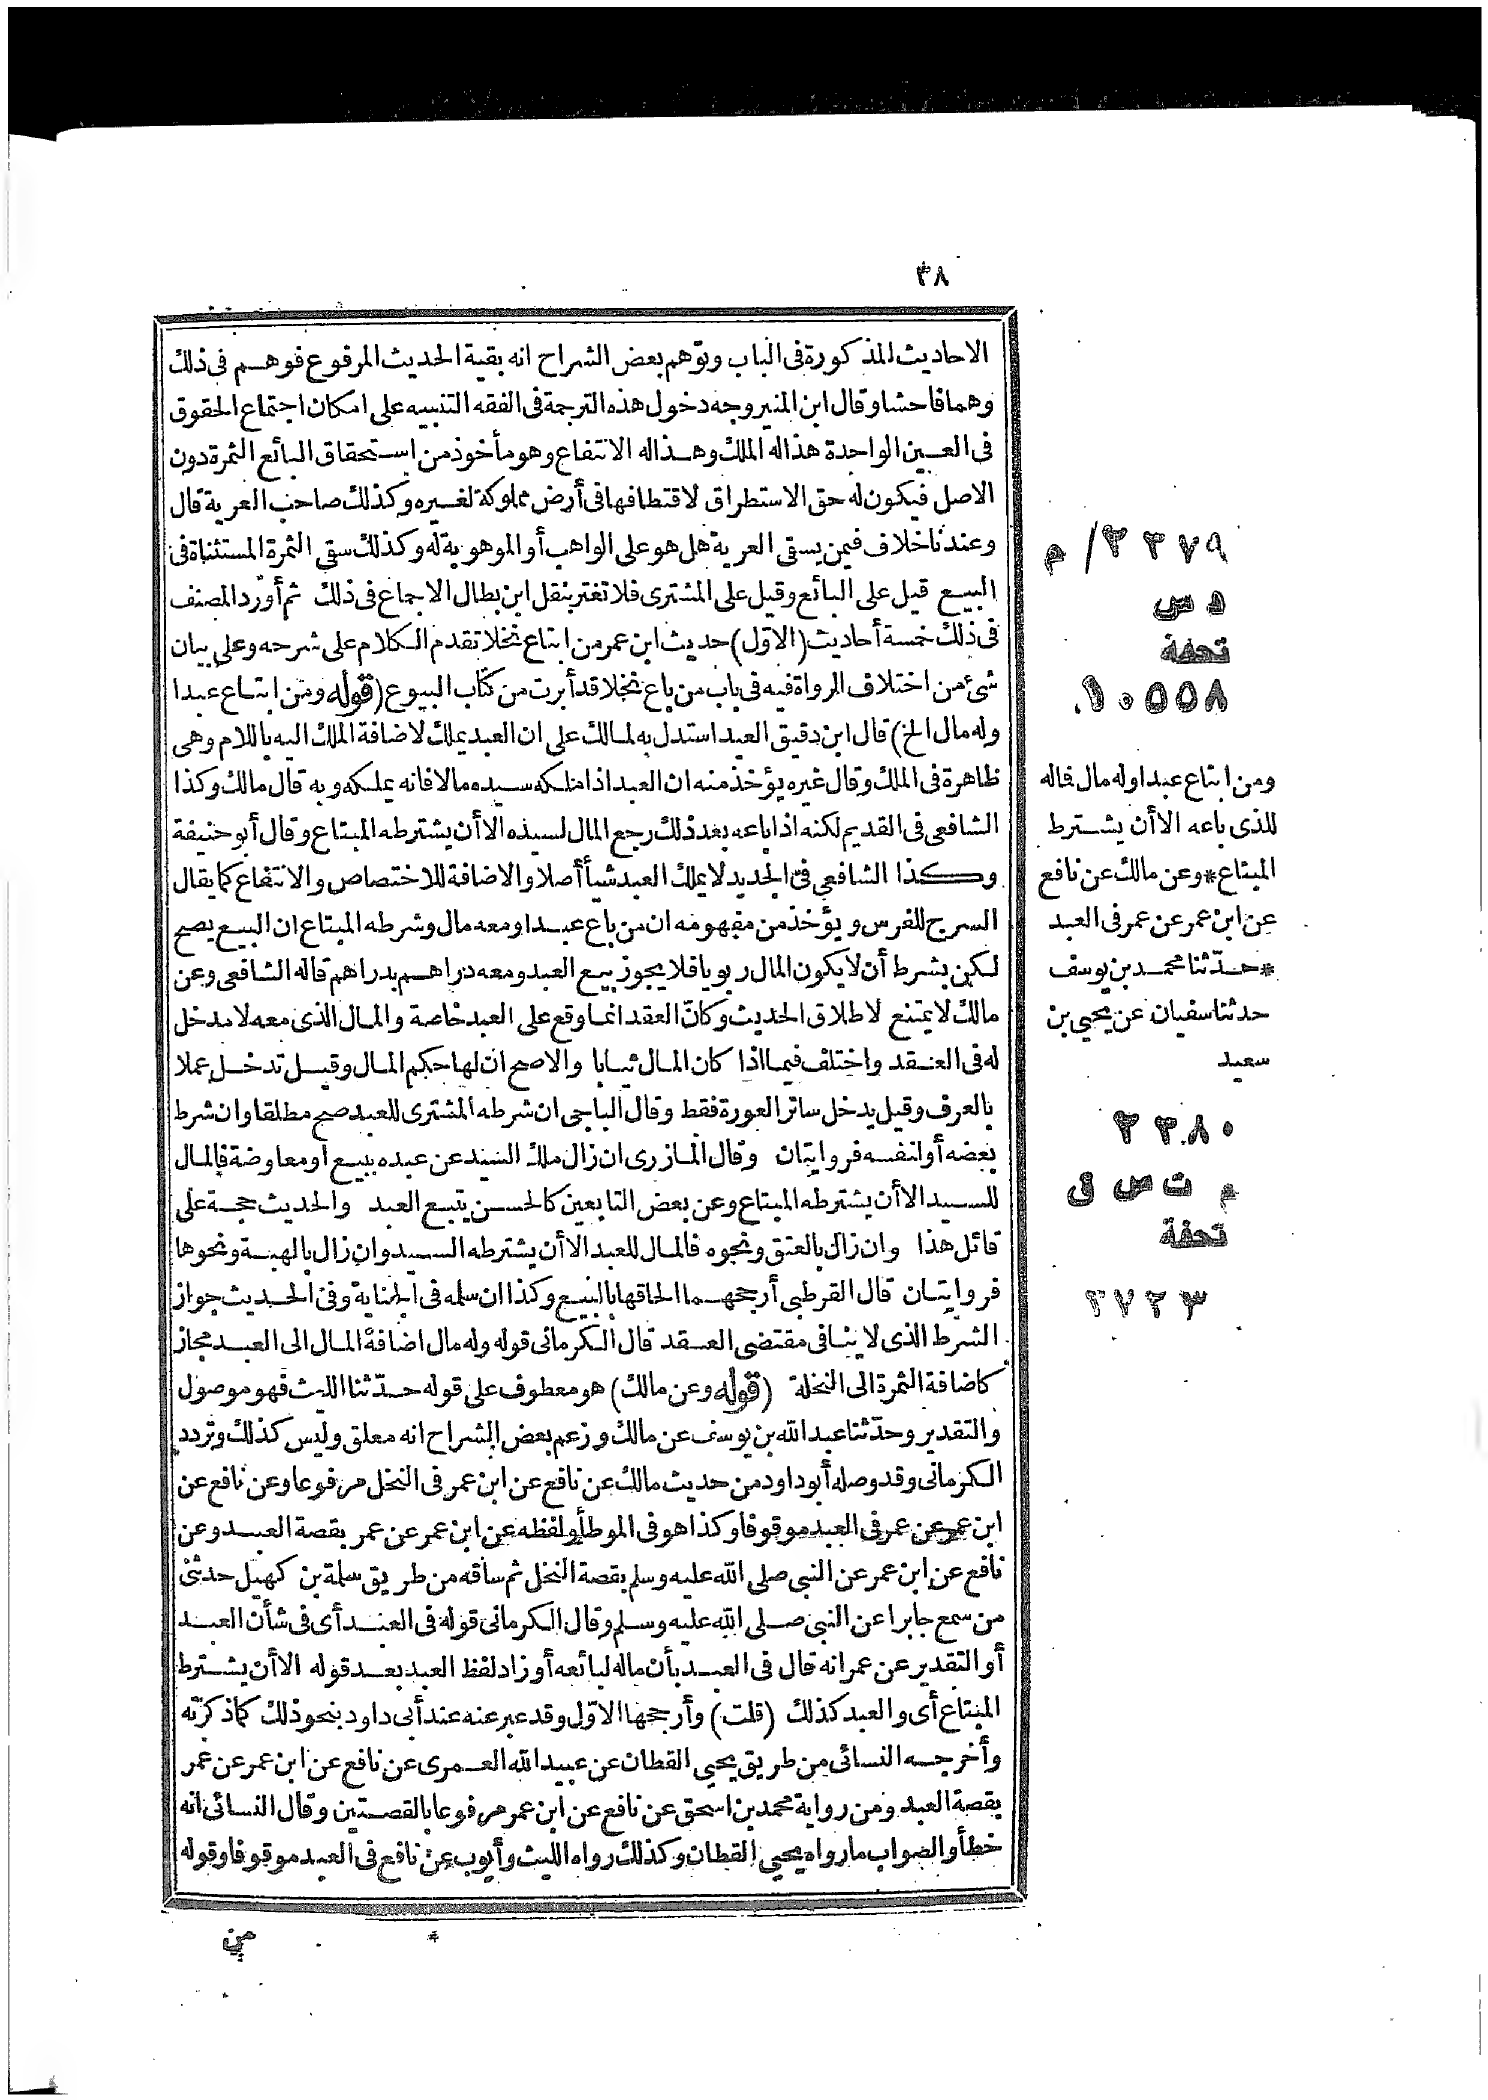 ٣٨
الاحاديث المذكورة فى الباب وتوهم بعض الشراح انه بقية الحديث المرفوع فوهم فى ذلك
وهما فاحشا وقال ابن المنير وجه دخول هذه الترجمة فى الفقه التنبيه على امكان اجتماع الحقوق
فى العين الواحدة هذا له الملك وهذا له الانتفاع وهو مأخوذ من استحقاق البائع الثمرة دون
الاصل فيكون له حق الاستطراق لاقتطافها فى أرض مملوكة لغيره وكذلك صاحب العرية قال
وعندنا خلاف فيمن يسقى العرية هل هو على الواهب أو الموهوبة له وكذلك سقى الثمرة المستثناة فى
البيع قيل على البائع وقيل على المشترى فلا تغتر بنقل ابن بطال الاجماع فى ذلك ثم أورد المصنف
فى ذلك خمسة أحاديث (الاول) حديث ابن عمر من ابتاع نخلا تقدم الكلام على شرحه وعلى بيان
شئ من اختلاف الرواة فيه فى باب من باع نخلا قد أبرت من كتاب البيوع (قوله ومن ابتاع عبدا
وله مال الخ) قال ابن دقيق العيد استدل به لمالك على ان العبد يملك لاضافة الملك اليه باللام وهى
ظاهرة فى الملك وقال غيره يؤخذ منه ان العبد اذا ملكه سيده مالا فانه يملكه وبه قال مالك وكذا
الشافعى فى القديم لكنه اذا باعه بعد ذلك رجع المال لسيده الا أن يشترطه المبتاع وقال أبو حنيفة
وكذا الشافعى فى الجديد لا يملك العبد شيأ أصلا والاضافة للاختصاص والانتفاع كما يقال
السرج للفرس ويؤخذ من مفهومه ان من باع عبدا ومعه مال وشرطه المبتاع ان البيع يصح
لكن بشرط أن لا يكون المال ربويا فلا يجوز بيع العبد ومعه دراهم بدراهم قاله الشافعى وعن
مالك لا يمتنع لاطلاق الحديث وكأن العقد انما وقع على العبد خاصة والمال الذى معه لا مدخل
له فى العقد واختلف فيما اذا كان المال ثيابا والاصح ان لها حكم المال وقيل تدخل عملا
بالعرف وقيل يدخل ساتر العورة فقط وقال الباجى ان شرطه المشترى للعبد صح مطلقا وان شرط
بعضه أو لنفسه فروايتان وقال المازرى ان زال ملك السيد عن عبده ببيع أو معاوضة فالمال
للسيد الا أن يشترطه المبتاع وعن بعض التابعين كالحسن يتبع العبد والحديث حجة على
قائل هذا وان زال بالعتق ونحوه فالمال للعبد الا أن يشترطه السيد وان زال بالهبة ونحوها
فروايتان قال القرطبى أرجحهما الحاقها بالبيع وكذا ان سلمه فى الجناية وفى الحديث جواز
الشرط الذى لا ينافى مقتضى العقد قال الكرمانى قوله وله مال اضافة المال الى العبد مجاز
كاضافة الثمرة الى النخلة (قوله وعن مالك) هو معطوف على قوله حدثنا الليث فهو موصول
والتقدير وحدثنا عبد الله بن يوسف عن مالك وزعم بعض الشراح انه معلق وليس كذلك وتردد
الكرمانى وقد وصله أبو داود من حديث مالك عن نافع عن ابن عمر فى النخل مرفوعا وعن نافع عن
ابن عمر عن عمر فى العبد موقوفا وكذا هو فى الموطأ ولفظه عن ابن عمر عن عمر بقصة العبد وعن
نافع عن ابن عمر عن النبى صلى الله عليه وسلم بقصة النخل ثم ساقه من طريق سلمة بن كهيل حدثنى
من سمع جابرا عن النبى صلى الله عليه وسلم وقال الكرمانى قوله فى العبد أى فى شأن العبد
أو التقدير عن عمر انه قال فى العبد بأن ماله لبائعه أو زاد لفظ العبد بعد قوله الا أن يشترط
المبتاع أى والعبد كذلك (قلت) وأرجحها الاول وقد عبر عنه عند أبى داود بنحو ذلك كما ذكرته
وأخرجه النسائى من طريق يحيى القطان عن عبيد الله العمرى عن نافع عن ابن عمر عن عمر
بقصة العبد ومن رواية محمد بن اسحق عن نافع عن ابن عمر مرفوعا بالقصتين وقال النسائى انه
خطأ والصواب ما رواه يحيى القطان وكذلك رواه الليث وأيوب عن نافع فى العبد موقوفا وقوله
من
٢٣٧٩/م
د س
تحفة
١٠٥٥٨
ومن ابتاع عبدا وله مال فاله
للذى باعه الا أن يشترط
المبتاع * وعن مالك عن نافع
عن ابن عمر عن عمر فى العبد
* حدثنا محمد بن يوسف
حدثنا سفيان عن يحيى بن
سعيد
٢٣٨٠
م ت س ق
تحفة
٣٧٢٣